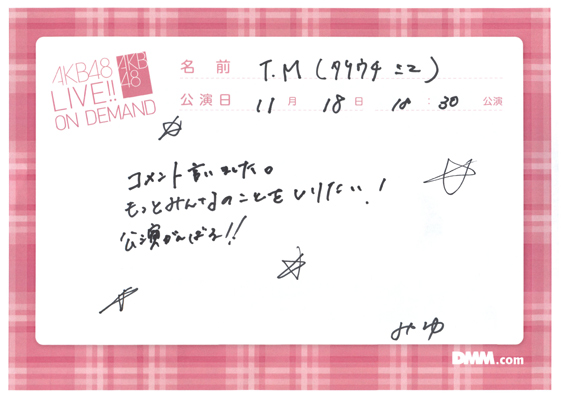 AKB48
LIVE!!
ON DEMAND
AKB
48
名前 T.M (タケウチ ミユ)
公演日 11月 18日 18:30 公演
コメント言いました。
もっとみんなのことをしりたい!
公演がんばる!!
みゆ
DMM.com